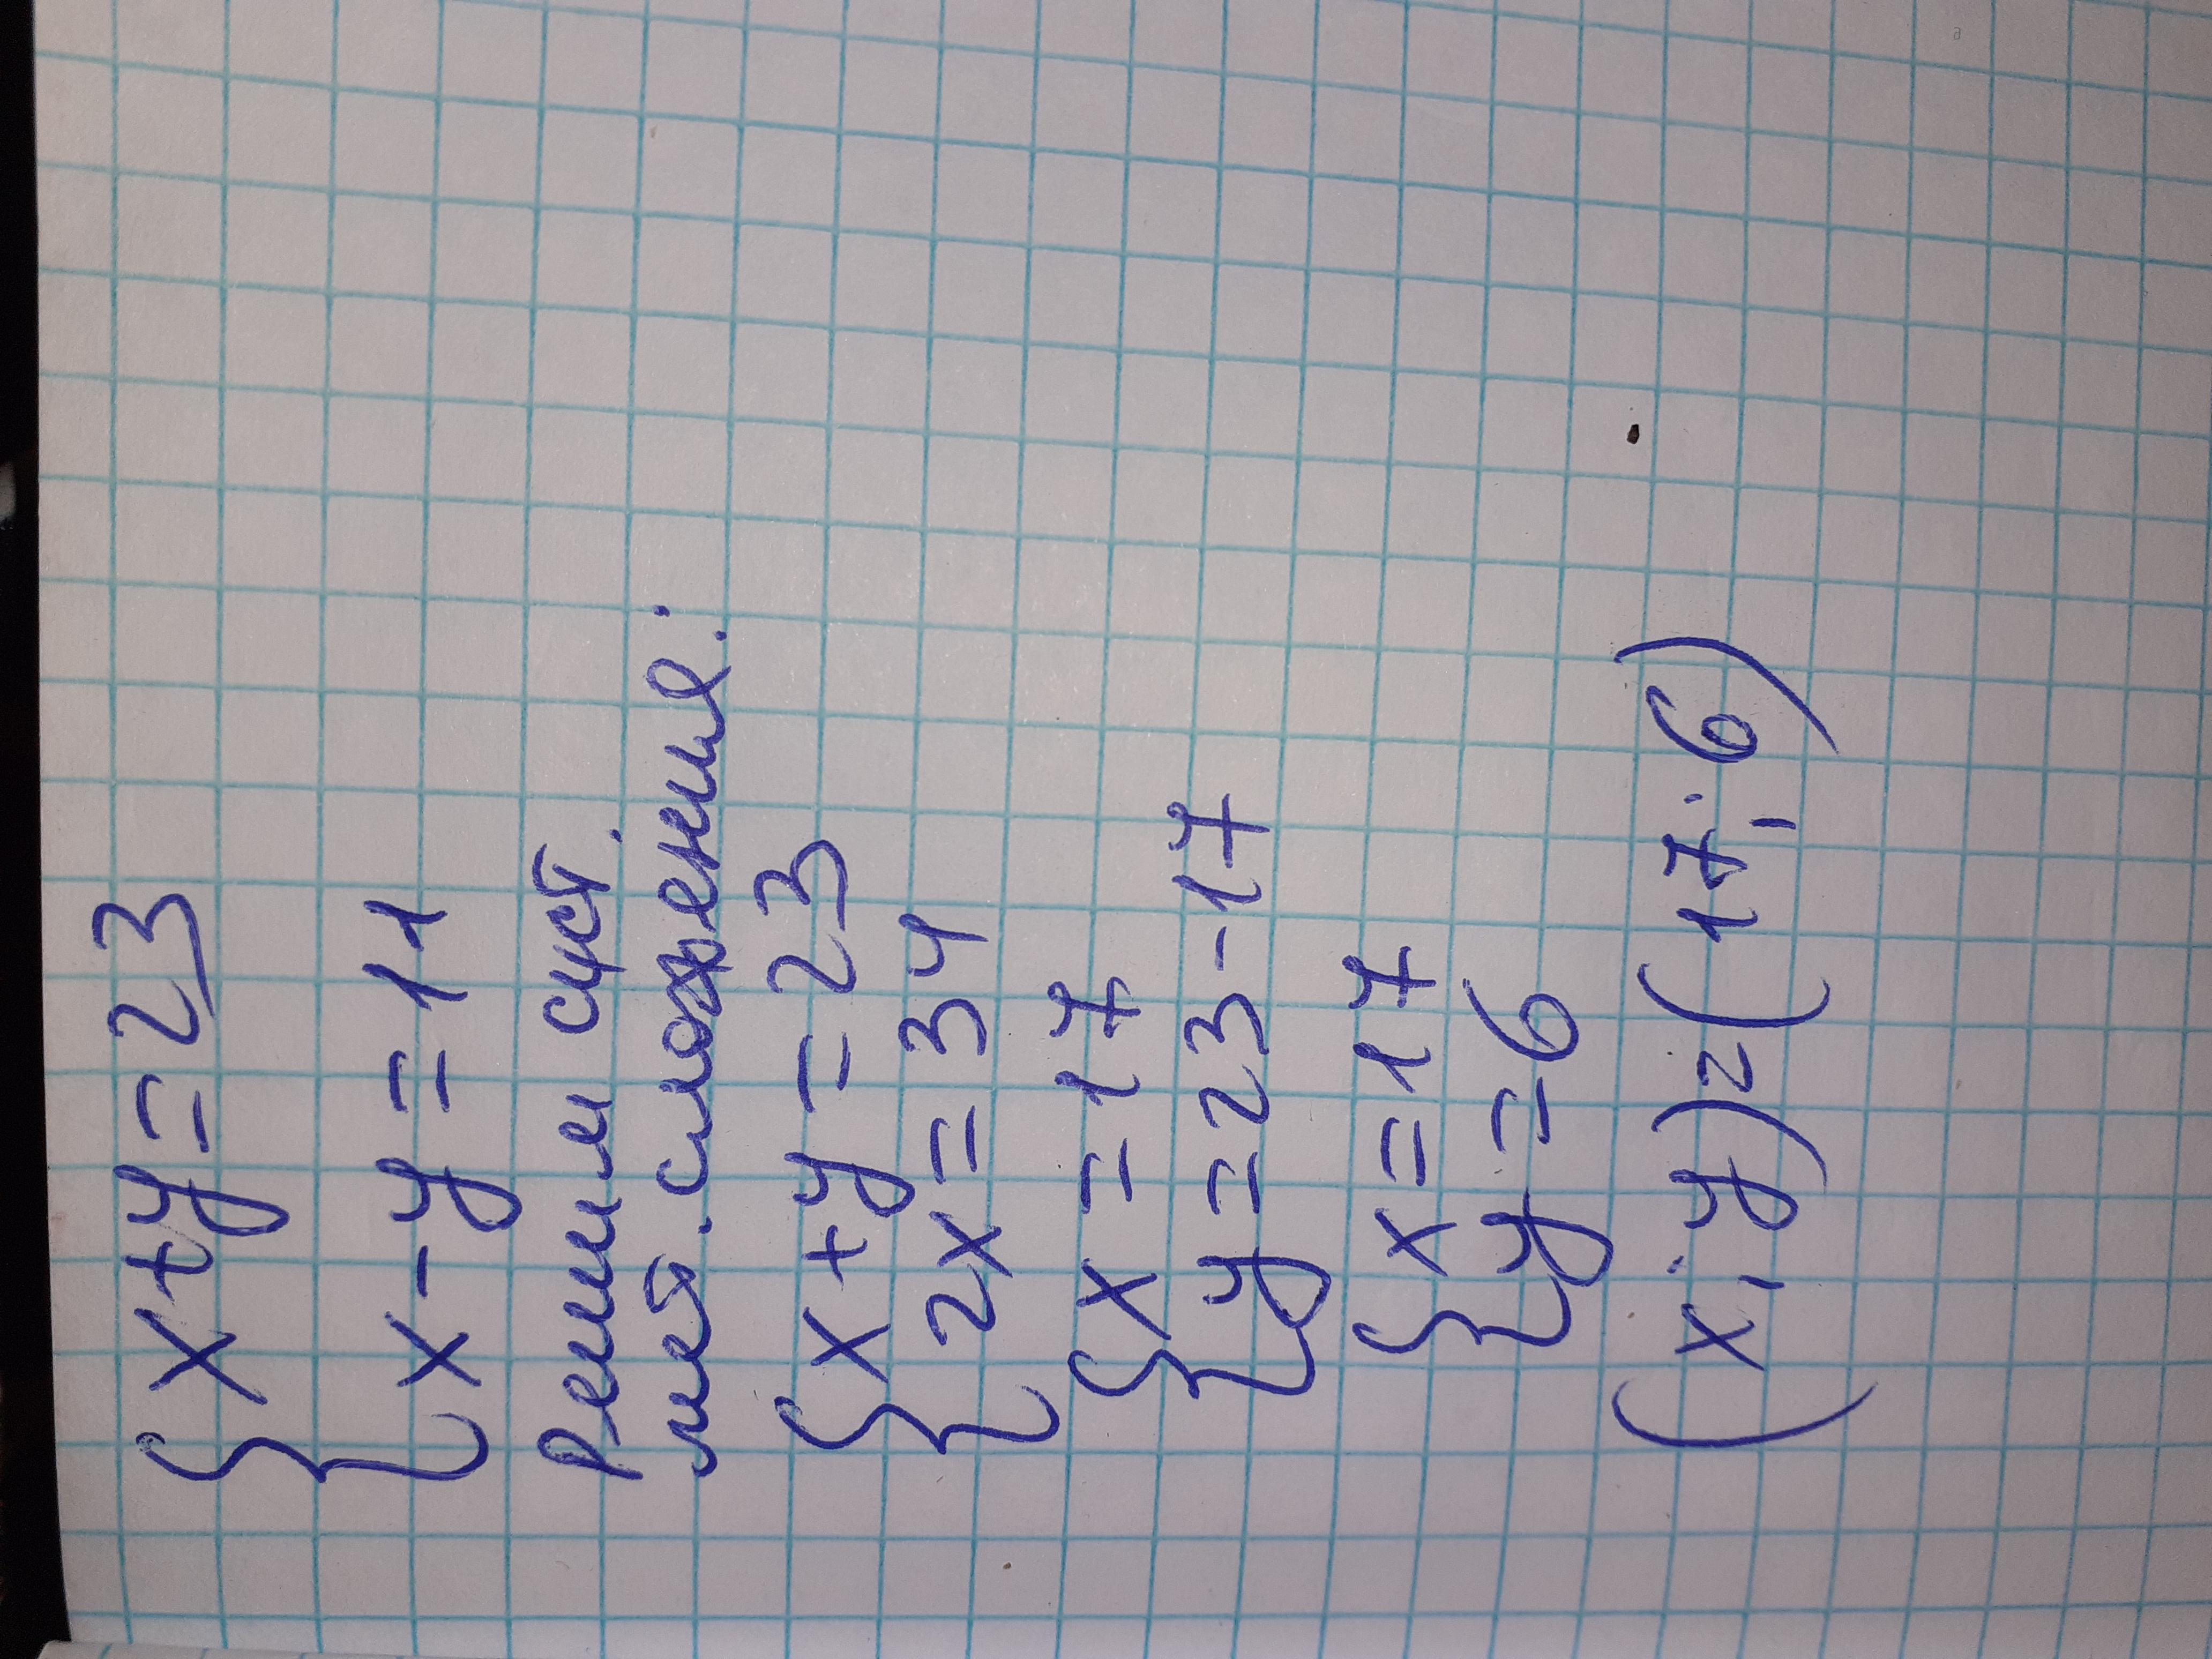 {x+y=23
{x-y=11
Решим сист.
мет. сложения:
{x+y=23
{2x=34
{x=17
{y=23-17
{x=17
{y=6
(x;y)=(17;6)